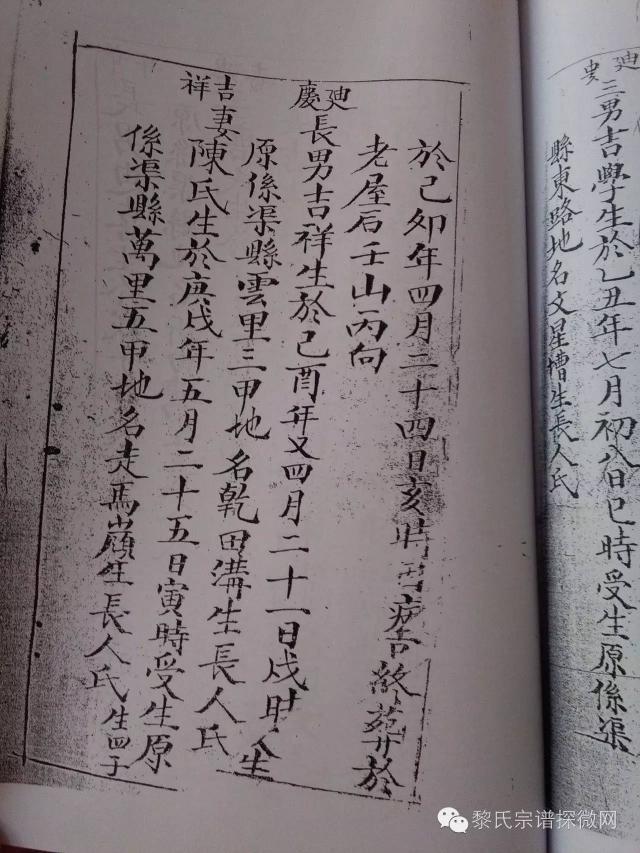 廸慶
三男吉學生於乙丑年七月初八日巳時受生原係渠
縣東路地名文星槽生長人氏
於己卯年四月二十四日亥時因病告終葬於
老屋后壬山丙向
廸慶
長男吉祥生於己酉年又四月二十一日戌時人生
原係渠縣雲里三甲地名乾田溝生長人氏
吉祥
妻陳氏生於庚戌年五月二十五日寅時受生原
係渠縣萬里五甲地名走馬嶺生長人氏生四子
黎氏宗谱探微网